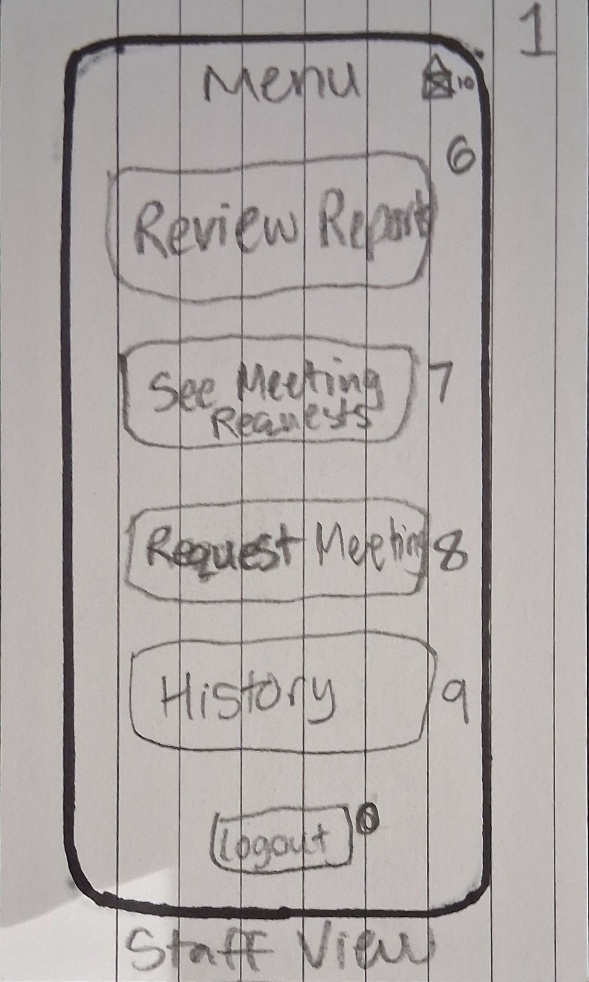 1
Menu
10
6
Review Report
See Meeting 7
Requests
Request Meeting 8
History 9
Logout 0
Staff View